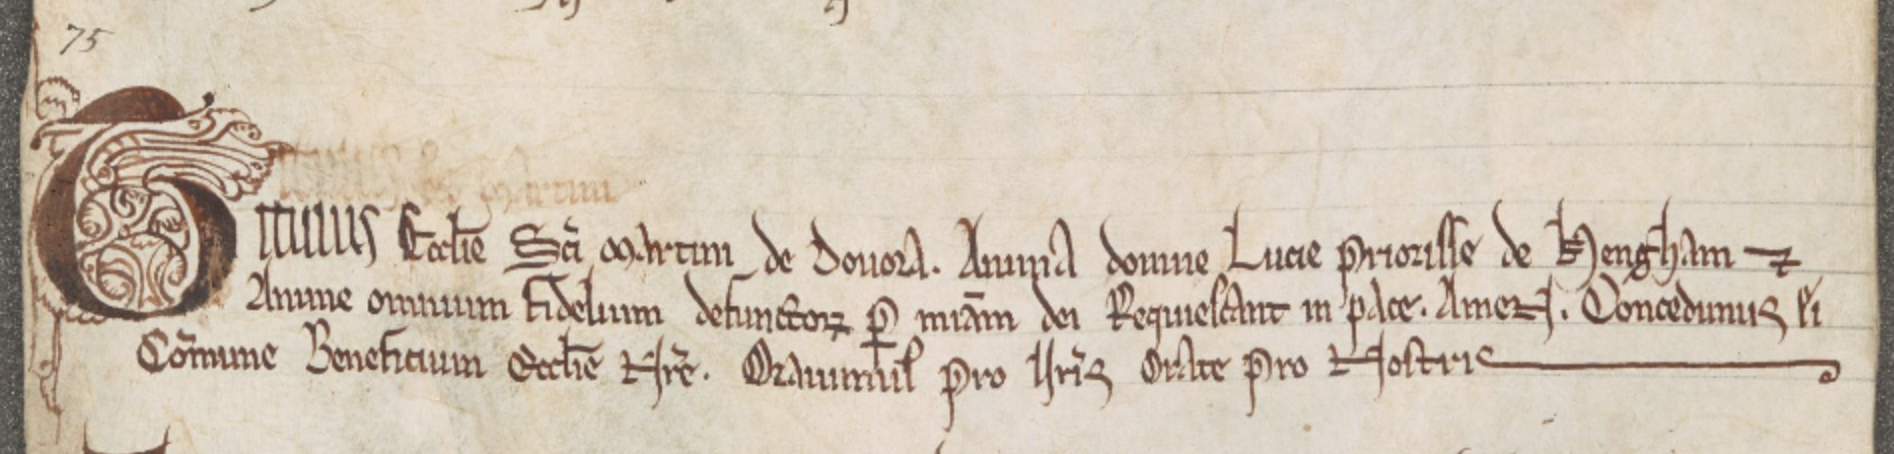 75
Titulus Ecclẽ Scĩ Martini de Douora. Anima domne Lucie priorisse de Hengham ⁊
Anime omnium fidelium defunctoꝝ ꝑ miãm dei Requiescant in pace. Amen. Concedimus ei
Cõmune Beneficium Ecclẽ Nrẽ. Orauimus pro uris Orate pro Nostris